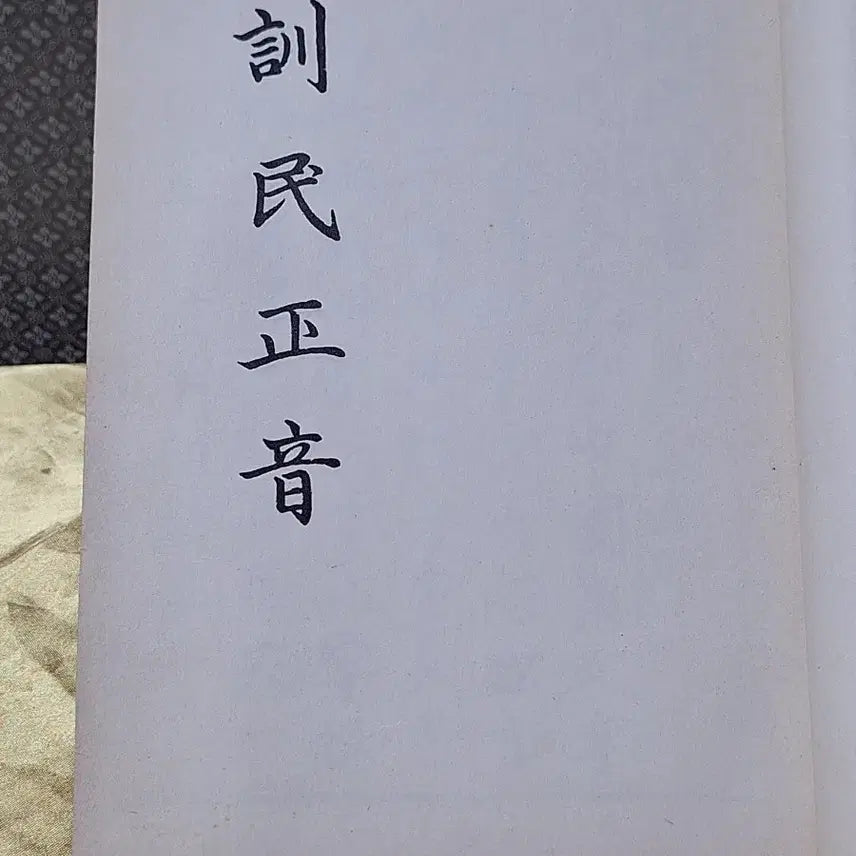 訓民正音